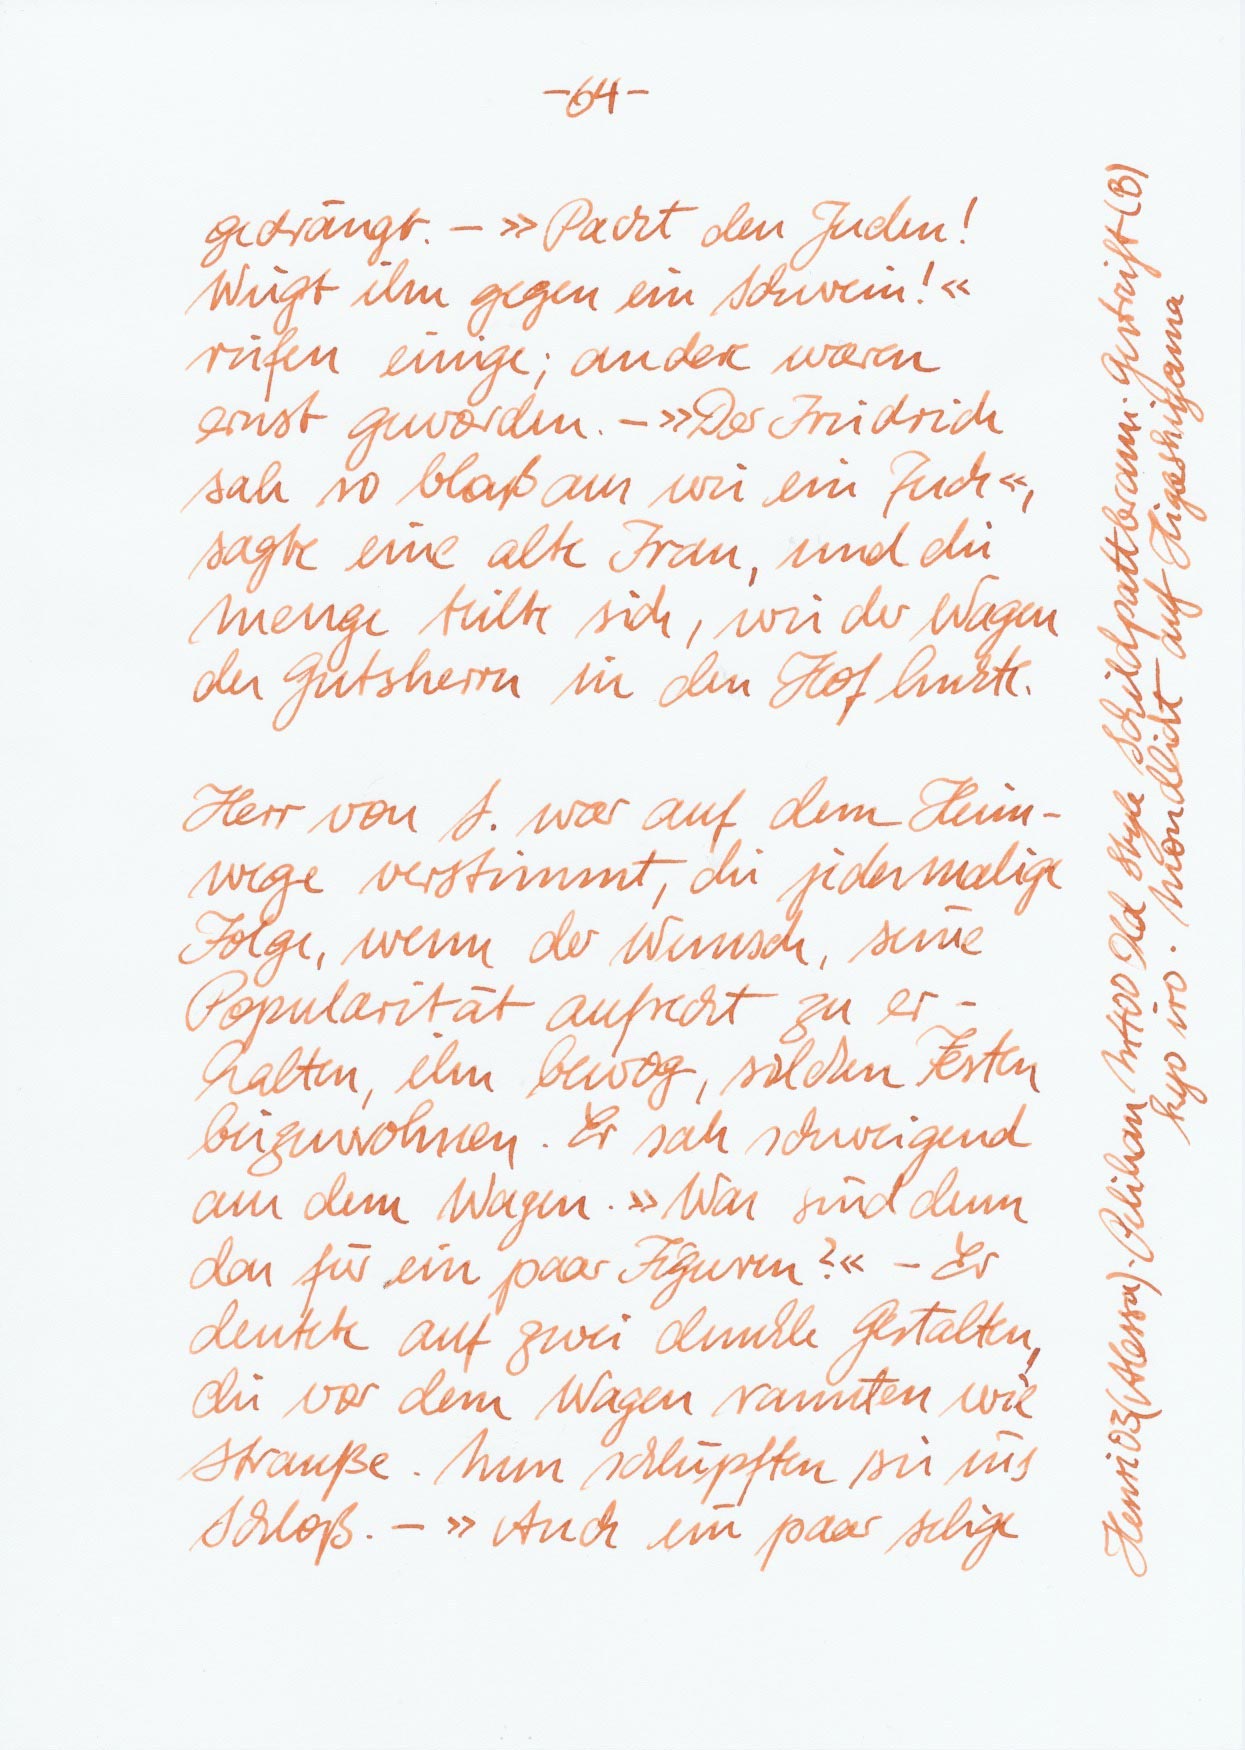 -64-
gedrängt. – »Packt den Juden!
Wiegt ihn gegen ein Schwein!«
riefen einige; andere waren
ernst geworden. – »Der Friedrich
sah so blaß aus wie ein Tuch«,
sagte eine alte Frau, und die
Menge teilte sich, wie der Wagen
des Gutsherrn in den Hof lenkte.
Herr von S. war auf dem Heim-
wege verstimmt, die jedesmalige
Folge, wenn der Wunsch, seine
Popularität aufrecht zu er-
halten, ihn bewog, solchen Festen
beizuwohnen. Er sah schweigend
aus dem Wagen. »Was sind denn
das für ein paar Figuren?« – Er
deutete auf zwei dunkle Gestalten,
die vor dem Wagen rannten wie
Strauße. Nun schlüpften sie ins
Schloß. – »Auch ein paar selige
Henri03(Alessa). Pelikan M400 Old Style Schildpattbraun. Gestreift (B)
kyo iro. Mondlicht auf Higashiyama